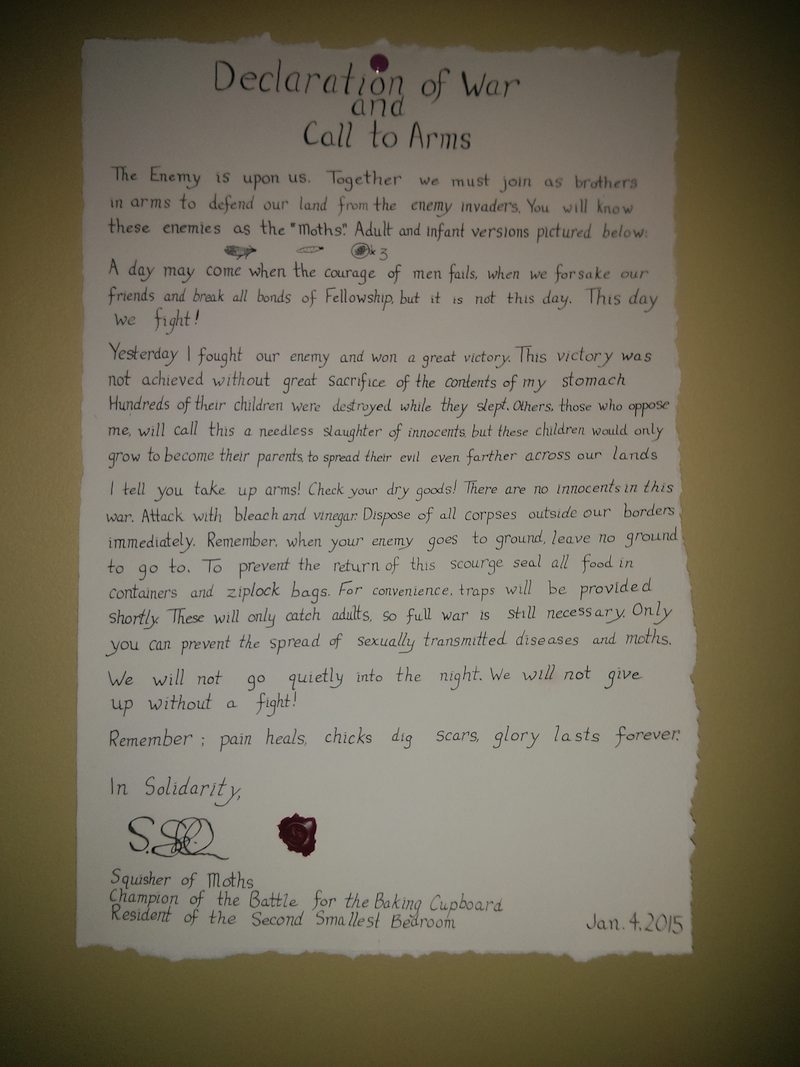 Declaration of War
and
Call to Arms
The Enemy is upon us. Together we must join as brothers
in arms to defend our land from the enemy invaders. You will know
these enemies as the "Moths". Adult and infant versions pictured below:
A day may come when the courage of men fails, when we forsake our
friends and break all bonds of Fellowship, but it is not this day. This day
we fight!
Yesterday I fought our enemy and won a great victory. This victory was
not achieved without great sacrifice of the contents of my stomach
Hundreds of their children were destroyed while they slept. Others, those who oppose
me, will call this a needless slaughter of innocents, but these children would only
grow to become their parents, to spread their evil even farther across our lands
I tell you take up arms! Check your dry goods! There are no innocents in this
war. Attack with bleach and vinegar. Dispose of all corpses outside our borders
immediately. Remember, when your enemy goes to ground, leave no ground
to go to. To prevent the return of this scourge seal all food in
containers and ziplock bags. For convenience, traps will be provided
shortly. These will only catch adults, so full war is still necessary. Only
you can prevent the spread of sexually transmitted diseases and moths.
We will not go quietly into the night. We will not give
up without a fight!
Remember; pain heals, chicks dig scars, glory lasts forever.
In Solidarity,
Squisher of Moths
Champion of the Battle for the Baking Cupboard
Resident of the Second Smallest Bedroom
Jan. 4, 2015